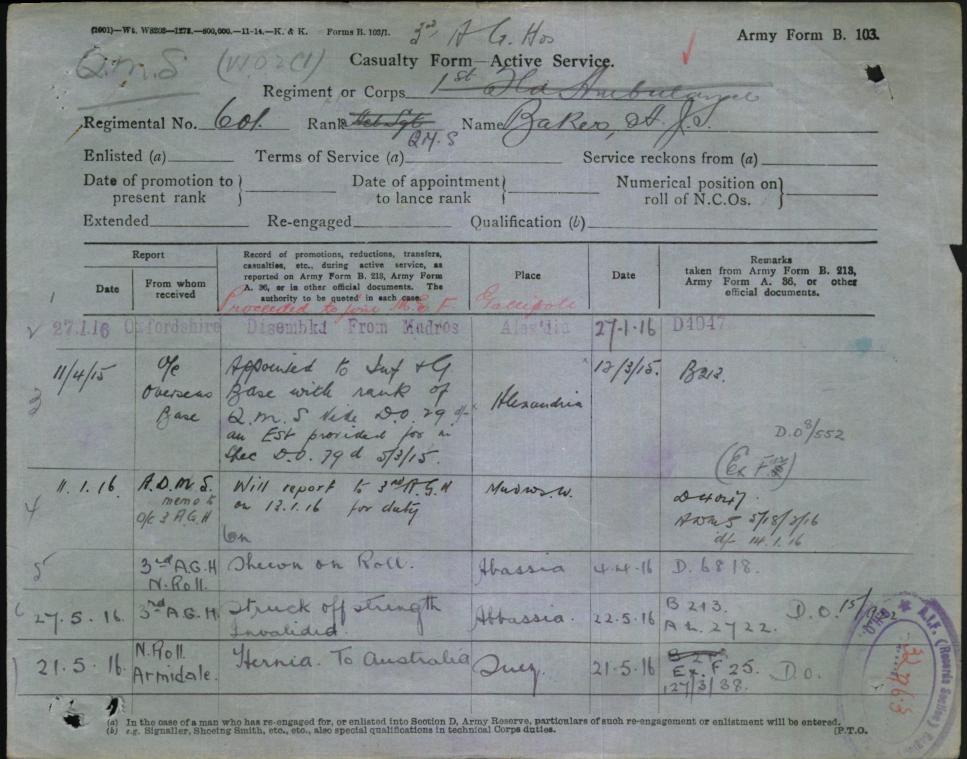 (2001)—Wt. W8202—1272.—500,000.—11-14.—K. & K. Forms B. 103/1.
3rd A G. Hos
Army Form B. 103.
Q.M.S (WO2Cl)
Casualty Form—Active Service.
Regiment or Corps 1st Fld Ambulance
Regimental No. 601. Rank Q.M.S Name Baker, H. J. S.
Enlisted (a) Terms of Service (a) Service reckons from (a)
Date of promotion to present rank Date of appointment to lance rank Numerical position on roll of N.C.Os.
Extended Re-engaged Qualification (b)
Report
Date
From whom received
Record of promotions, reductions, transfers, casualties, etc., during active service, as reported on Army Form B. 213, Army Form A. 36, or in other official documents. The authority to be quoted in each case.
Place
Date
Remarks
taken from Army Form B. 213, Army Form A. 36, or other official documents.
1 Proceeded to join M.E.F. Gallipoli
27.1.16 Oxfordshire Disembkd From Mudros Alex'dia 27-1-16 D4947
3 11/4/15 O/c Overseas Base
Appointed to Inf & G
Base with rank of
Q.M.S Vide D.O. 29
an Est provided for in
Spec D.O. 79 d 5/3/15.
Alexandria 12/3/15. B213.
D.O 8/552
4 11.1.16. A.D.M.S. memo to O/c 3 A.G.H
Will report to 3rd A.G.H
on 12.1.16 for duty
Mudros W.
ADMS 5/18/2/16
d/- 14.1.16
5 3rd A.G.H N. Roll. Shewn on Roll. Abassia 4-4-16 D. 6818.
6 27.5.16 3rd A.G.H. Struck off strength Invalided. Abbassia. 22.5.16 B 213. A L. 2722. D.O.
21.5.16. N. Roll. Armidale. Hernia. To Australia Suez. 21.5.16 Ex. F 25. 127/3/38. D.o.
A.I.F. (Records Section)
(a) In the case of a man who has re-engaged for, or enlisted into Section D, Army Reserve, particulars of such re-engagement or enlistment will be entered.
(b) e.g. Signaller, Shoeing Smith, etc., etc., also special qualifications in technical Corps duties. [P.T.O.